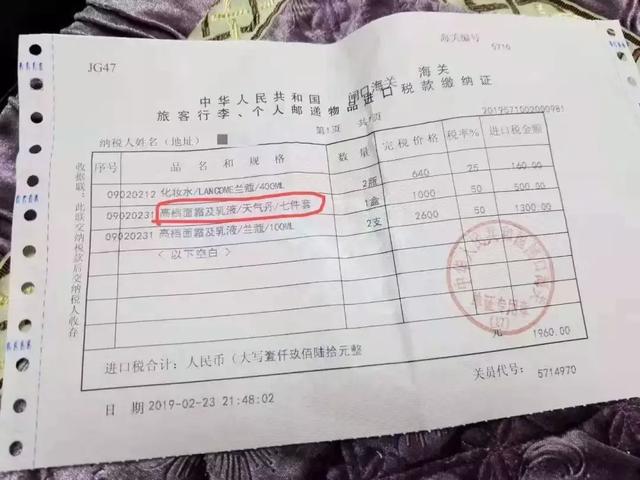 海关编号
5716
JG47
中华人民共和国 闸口海关 海关
旅客行李、个人邮递物品进口税款缴纳证
纳税人姓名(地址)
第1页 共1页
201957150200098l
序号 品名和规格 数量 完税价格 税率% 进口税金额
09020212 化妆水/LANCOME兰蔻/400ML 2瓶 640 25 160.00
09020231 高档面霜及乳液/天气丹/七件套 1盒 1000 50 500.00
09020231 高档面霜及乳液/兰蔻/100ML 2支 2600 50 1300.00
(以下空白)
进口税合计: 人民币(大写壹仟玖佰陆拾元整 元 1960.00
日 期 2019-02-23 21:48:02
关员代号: 5714970
收据联:此联交纳税款后交纳税人收存